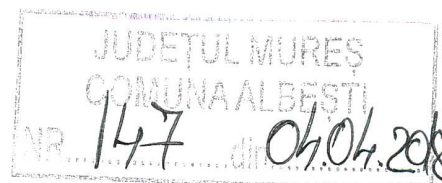 JUDEȚUL MUREȘ
COMUNA ALBEȘTI
NR. 147 din 04.04.2018